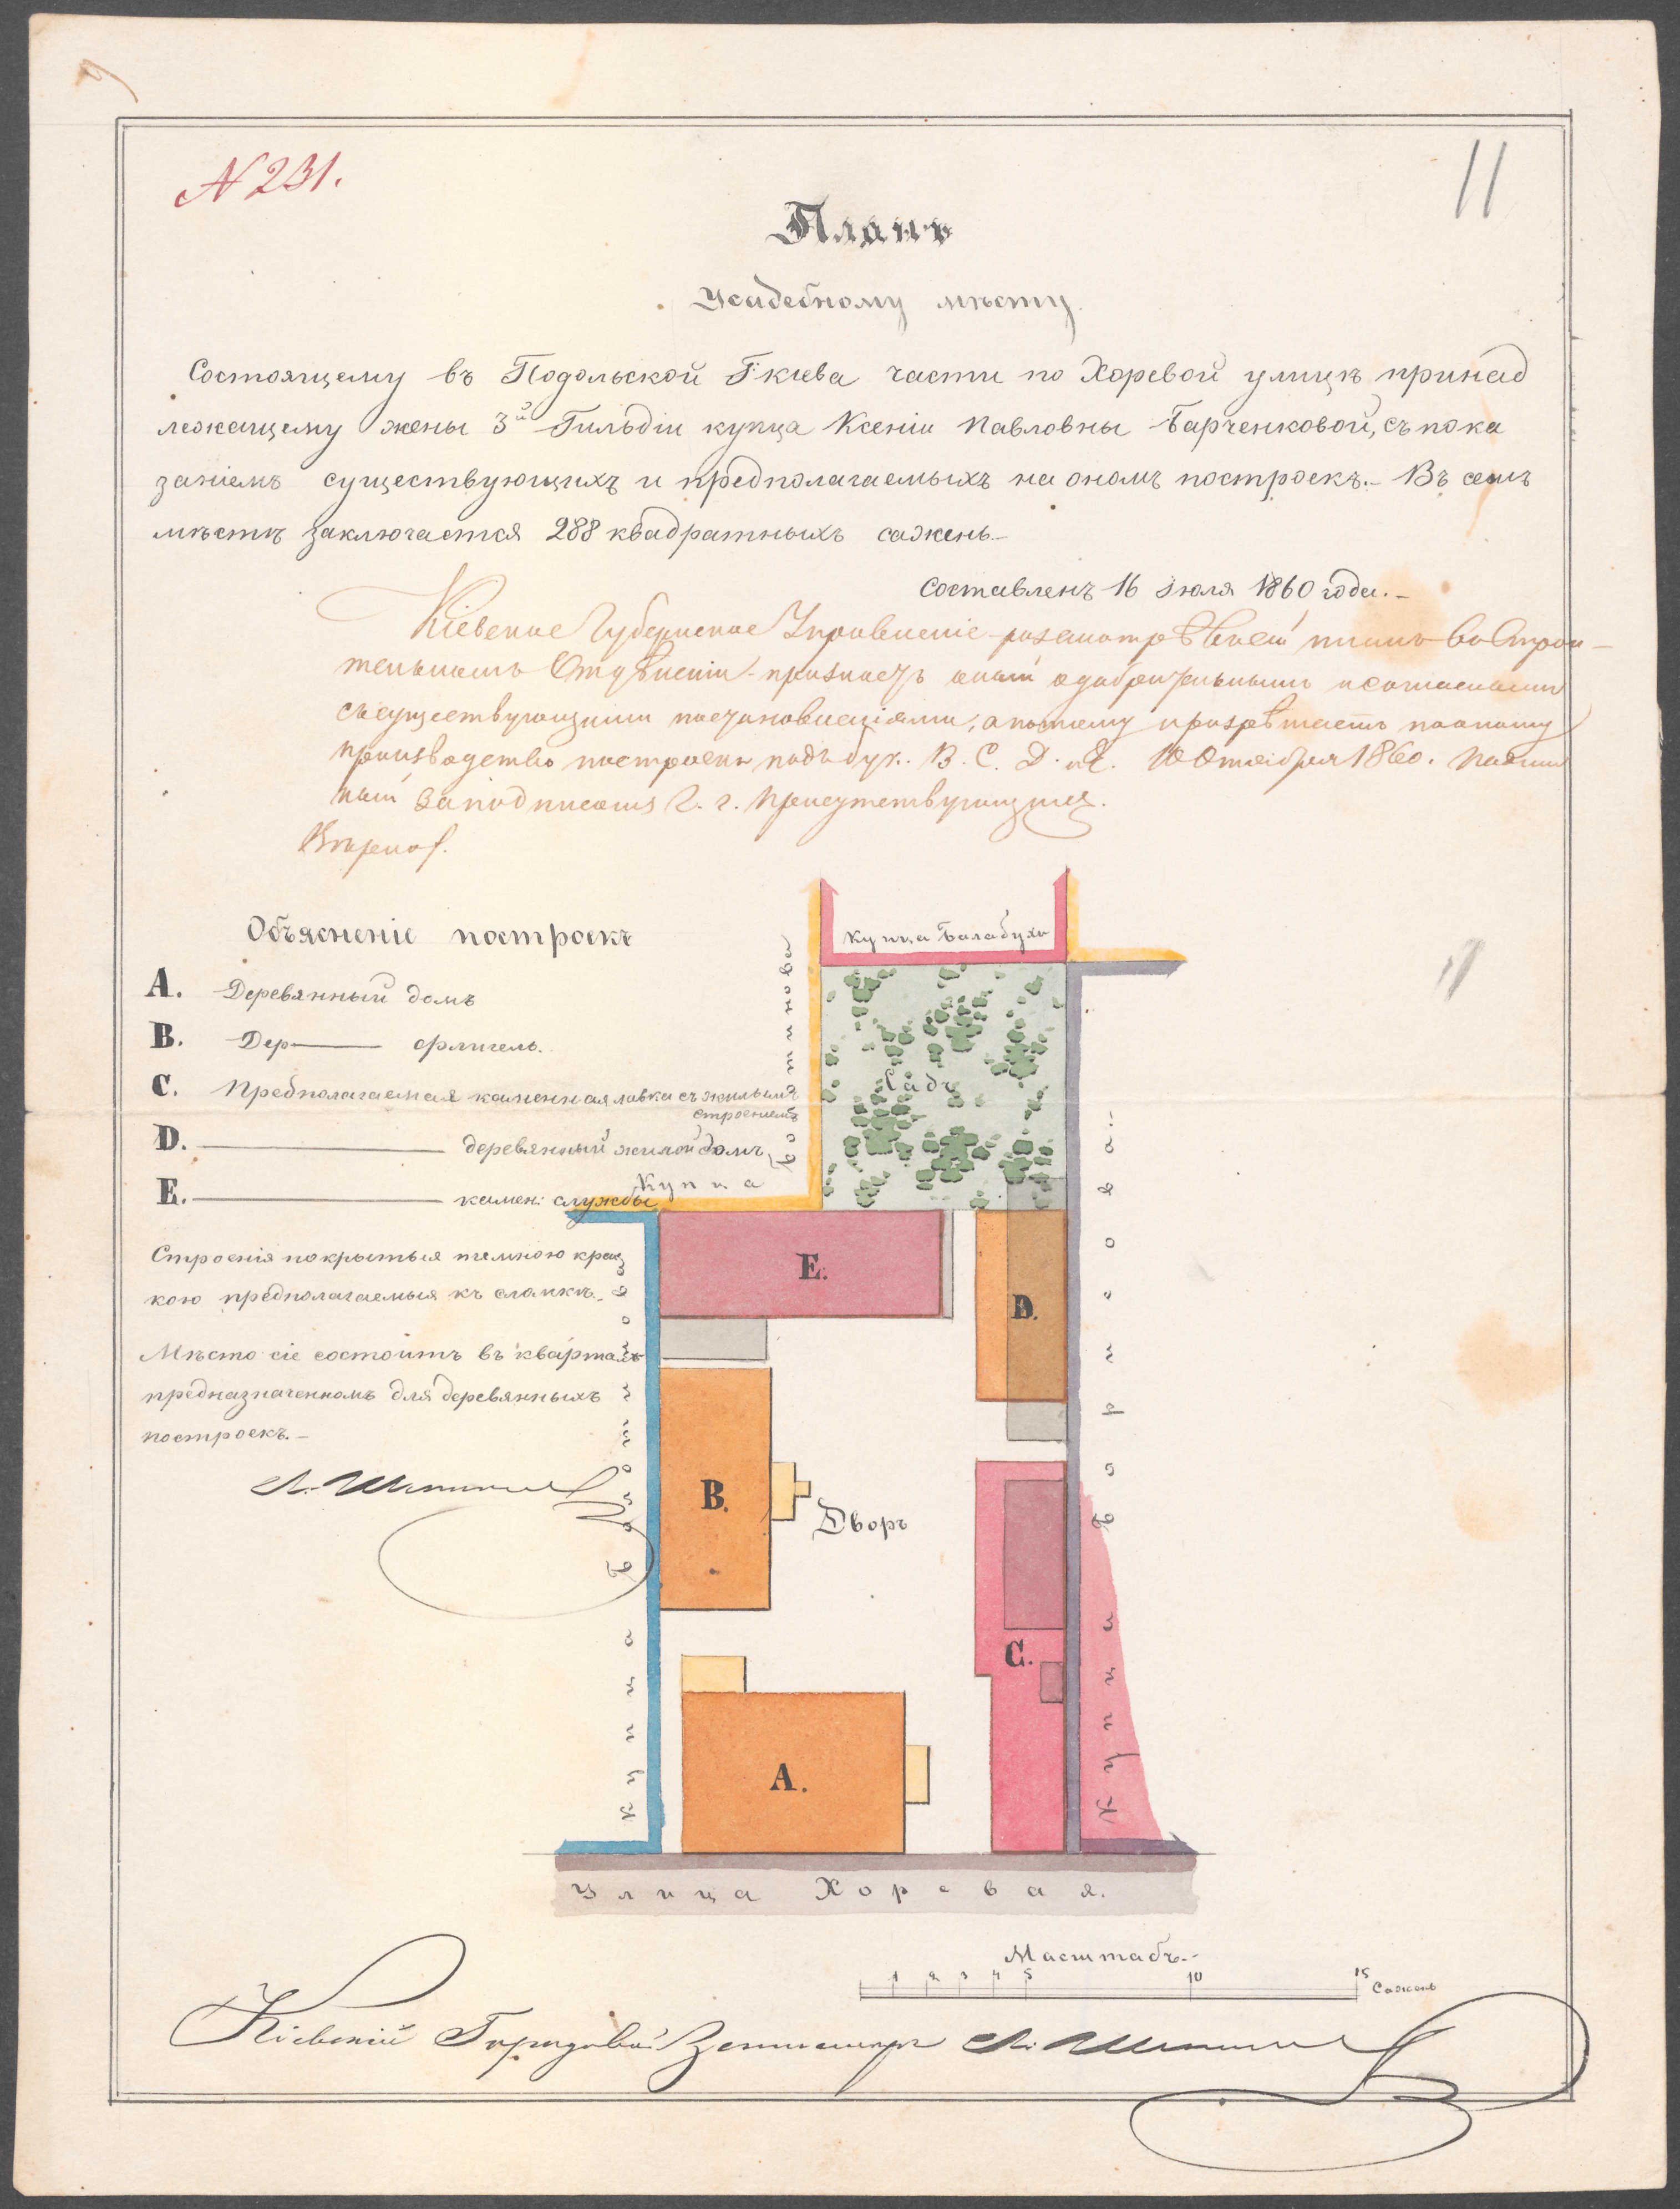 N 231.
11
Планъ
Усадебному мѣсту.
Состоящему въ Подольской Г. Кіева части по Хоревой улицѣ принад
лежащему жены 3й Гильдіи купца Ксеніи Павловны Барченковой, съ пока
заніемъ существующихъ и предполагаемыхъ на ономъ построекъ.- Въ семъ
мѣстѣ заключается 288 квадратныхъ сажень.-
Составленъ 16 Іюля 1860 года.-
Кіевское Губернское Управленіе разсмотрѣвъ сей планъ въ Строи-
тельномъ Отдѣленіи признаетъ оный одобрительнымъ и согласнымъ
съ существующими постановленіями, а потому разрѣшаетъ по оному
производство построекъ подъ бук. В. С. D. и Е. 10 Октября 1860. Подлин
ный за подписомъ Г. г. Присутствующихъ.
Вѣрно
Объясненіе построекъ
A. Деревянный домъ
B. Дер—— флигель.
C. Предполагаемая каменная лавка съ жилымъ
строеніемъ
D. —— деревянный жилой домъ
E. —— камен: службы
Строенія покрытыя темною крас
кою предполагаемыя къ сломкѣ.-
Мѣсто сіе состоитъ въ кварталѣ
предназначенномъ для деревянныхъ
построекъ.-
Купца Балабухи
Садъ
Купца
E.
D.
B.
Дворъ
C.
A.
Купца
Купца
Улица Хоревая.
Масштабъ.-
1 2 3 4 5 10 15 Сажень
Кіевскій Городовой Землемѣръ